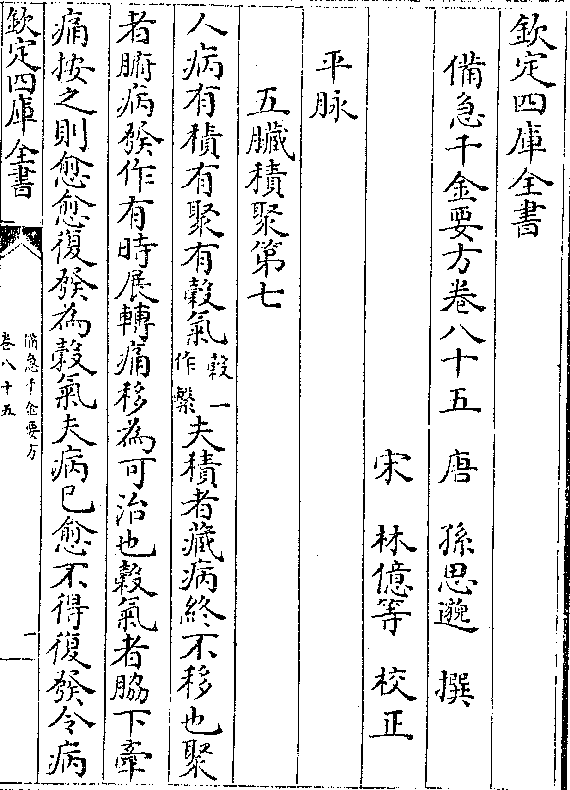 欽定四庫全書
備急千金要方卷八十五　唐　孫思邈　撰
宋　林億等　校正
平脉
五臓積聚第七
人病有積有聚有穀氣穀一作繫夫積者藏病終不移也聚
者腑病發作有時展轉痛移為可治也穀氣者脇下牽
痛按之則愈愈復發為穀氣夫病已愈不得復發今病
欽定四庫全書
備急千金要方
卷八十五
一